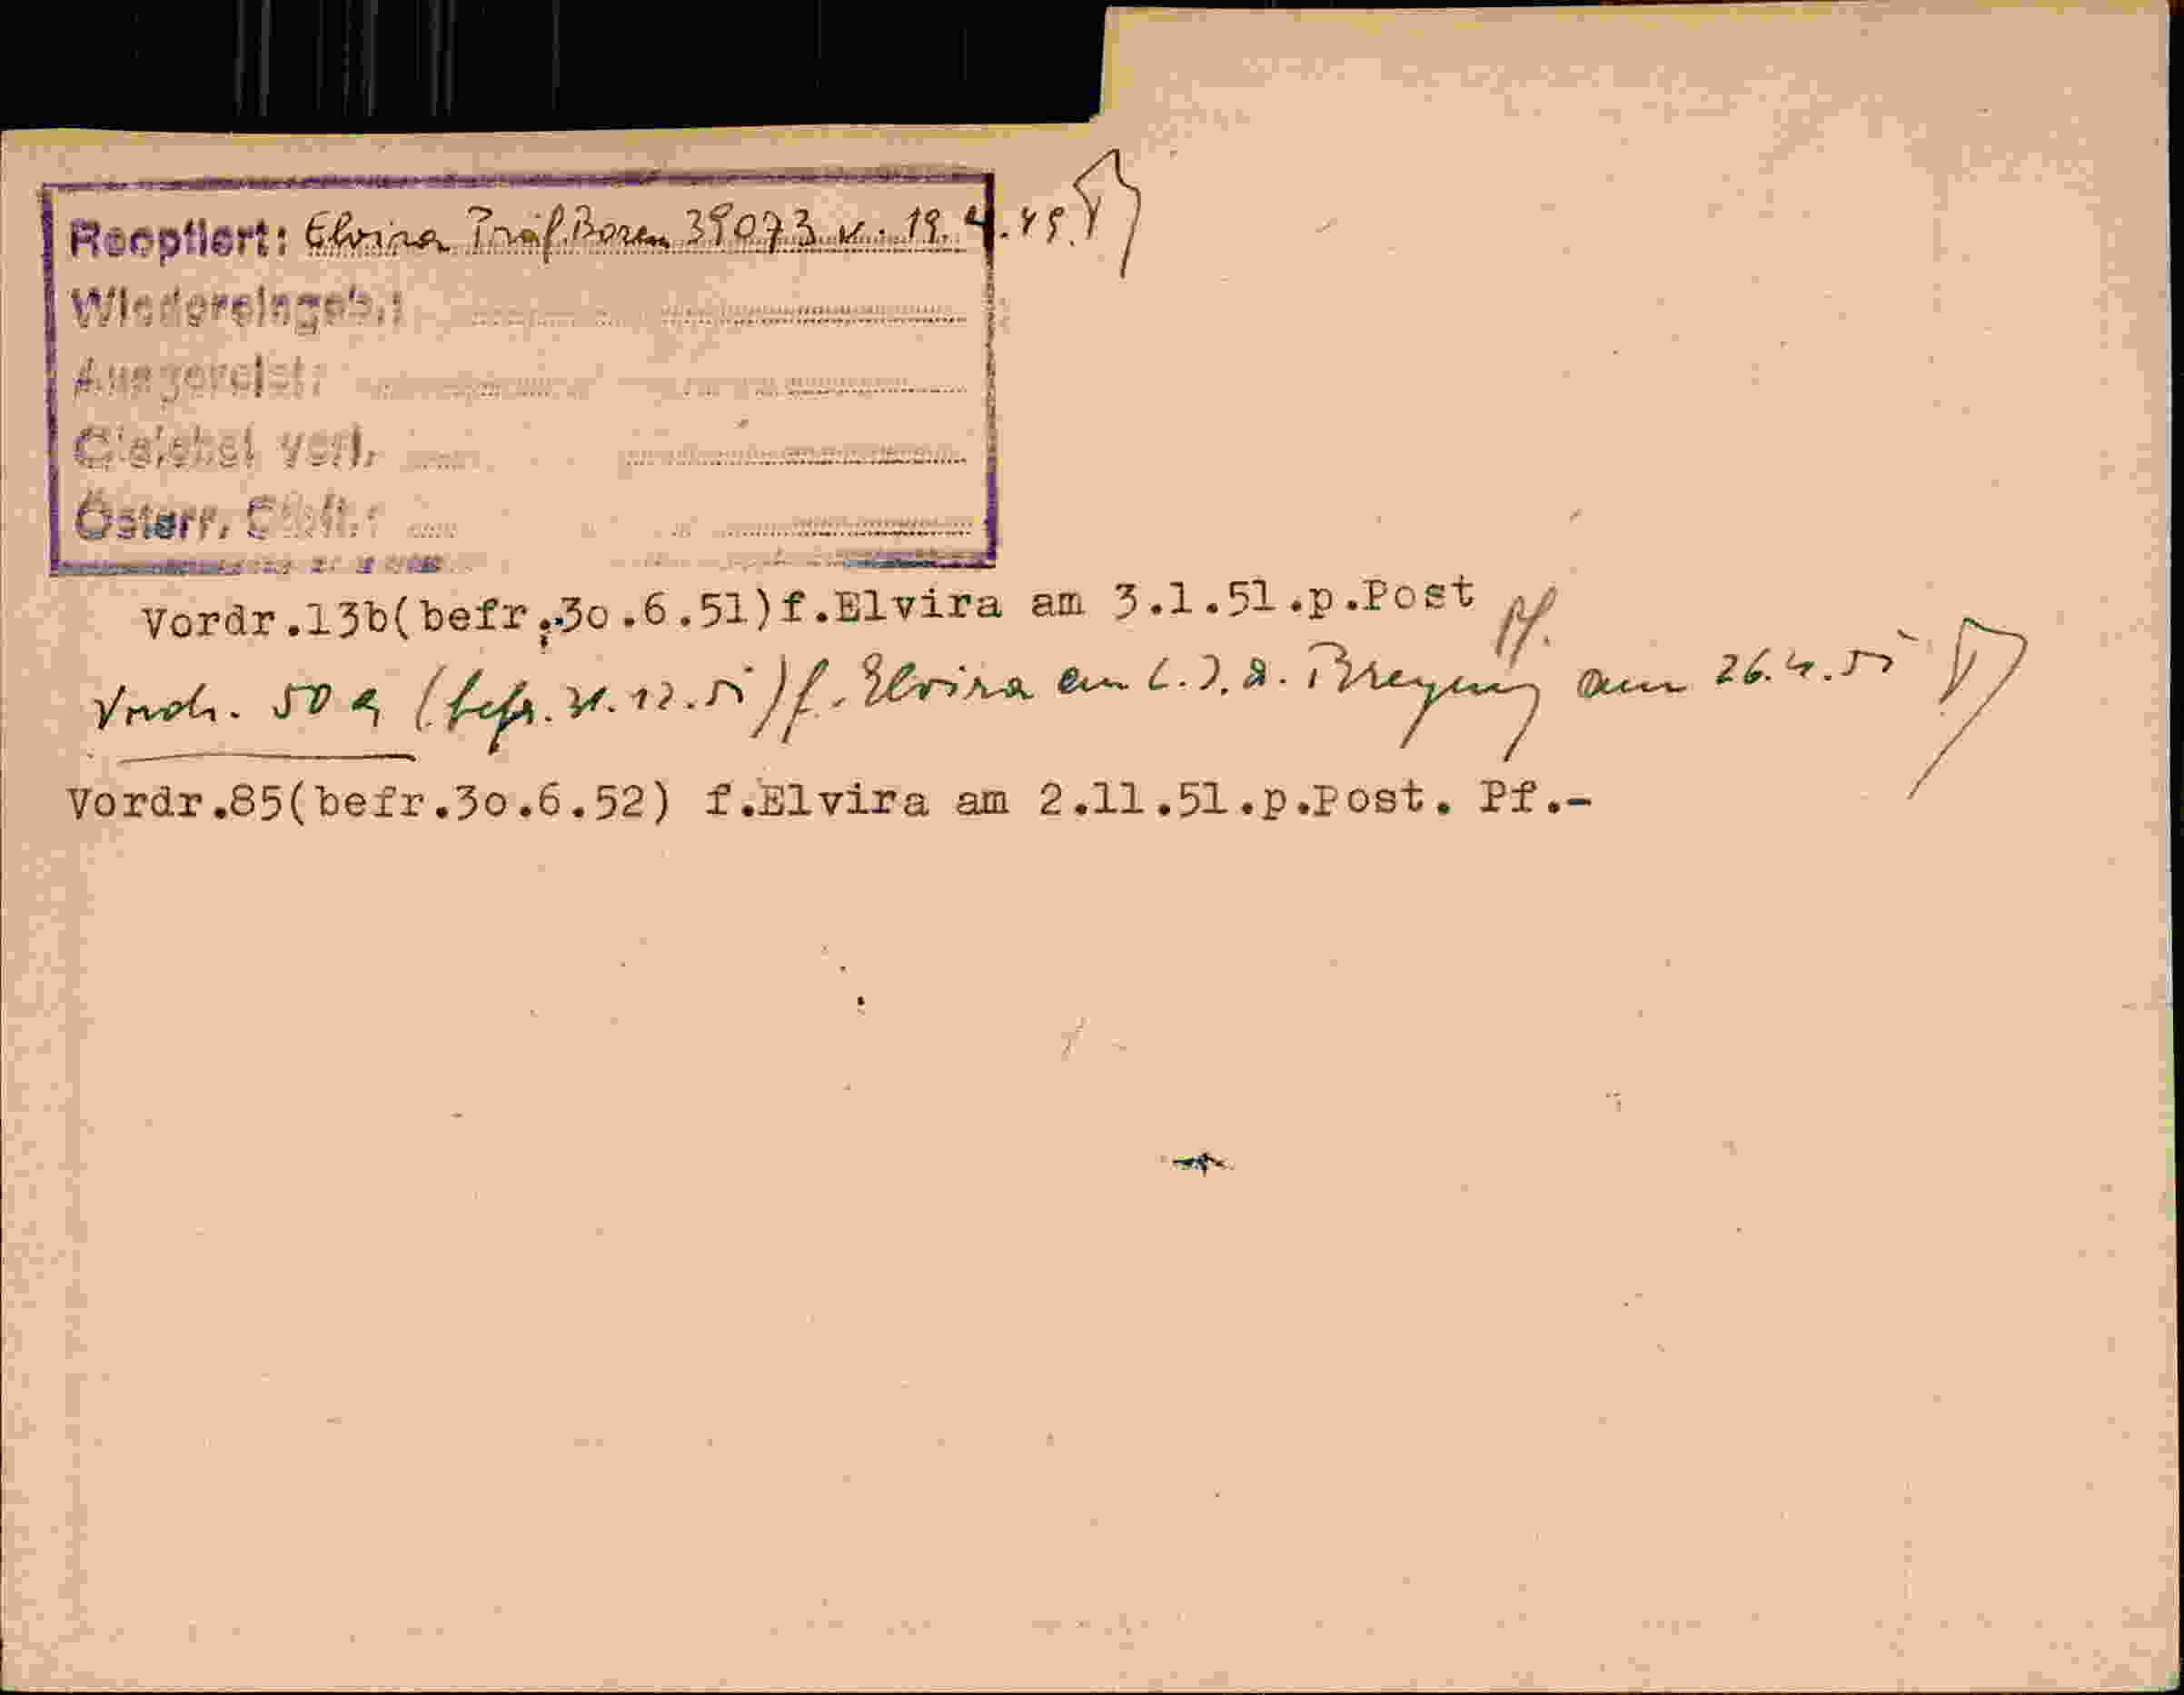 Reoptiert: Elvira Präf. Bozen 39073 v. 19.4.49.
Wiedereingeb.:
Ausgereist:
Gleichst. verl.
Österr. Stb.:
Vordr.13b(befr.:30.6.51)f.Elvira am 3.1.51.p.Post Pf.
Vordr. 50 a (befr. 31.12.51) f. Elvira an L.I.A. Bregenz am 26.4.51
Vordr.85(befr.3o.6.52) f.Elvira am 2.11.51.p.Post. Pf.-